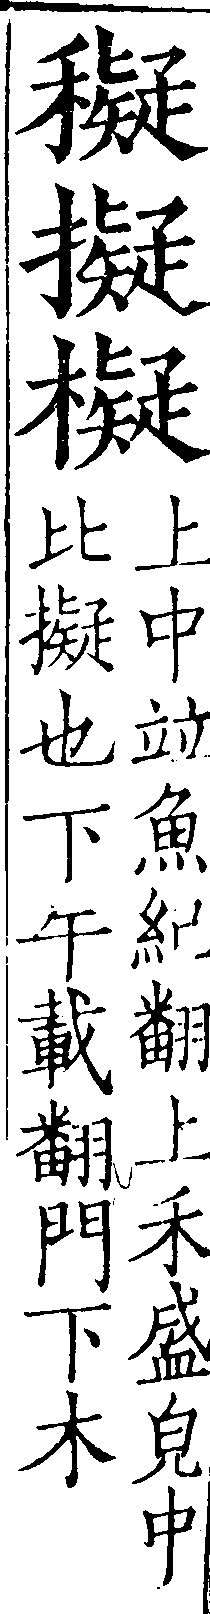 䅫擬檥
上中竝魚紀翻上禾盛皃中
比擬也下午載翻門下木